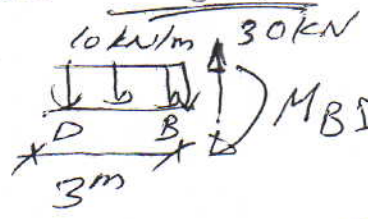 10 kN/m 30KN
D B MBD
3m